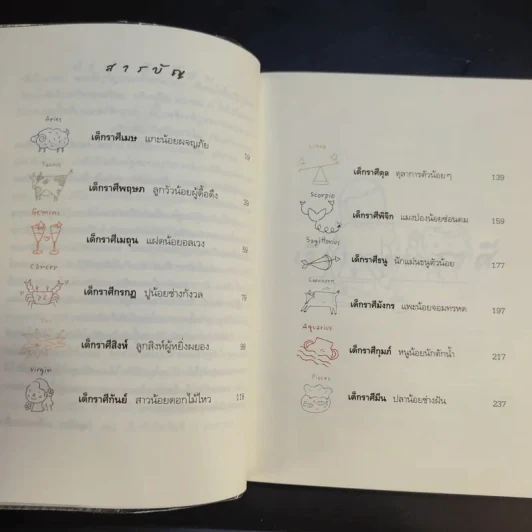 สารบัญ
Aries
เด็กราศีเมษ แกะน้อยผจญภัย 19
Taurus
เด็กราศีพฤษภ ลูกวัวน้อยผู้ดื้อดึง 39
Gemini
เด็กราศีเมถุน แฝดน้อยอลเวง 59
Cancer
เด็กราศีกรกฎ ปูน้อยช่างกังวล 79
เด็กราศีสิงห์ ลูกสิงห์ผู้หยิ่งผยอง 99
Virgin
เด็กราศีกันย์ สาวน้อยดอกไม้ไหว 119
Libra
เด็กราศีตุล ตุลาการตัวน้อยๆ 139
Scorpio
เด็กราศีพิจิก แมงป่องน้อยซ่อนคม 159
Sagittarius
เด็กราศีธนู นักแม่นธนูตัวน้อย 177
Capricorn
เด็กราศีมังกร แพะน้อยจอมทรหด 197
Aquarius
เด็กราศีกุมภ์ หนูน้อยนักตักน้ำ 217
Pisces
เด็กราศีมีน ปลาน้อยช่างฝัน 237